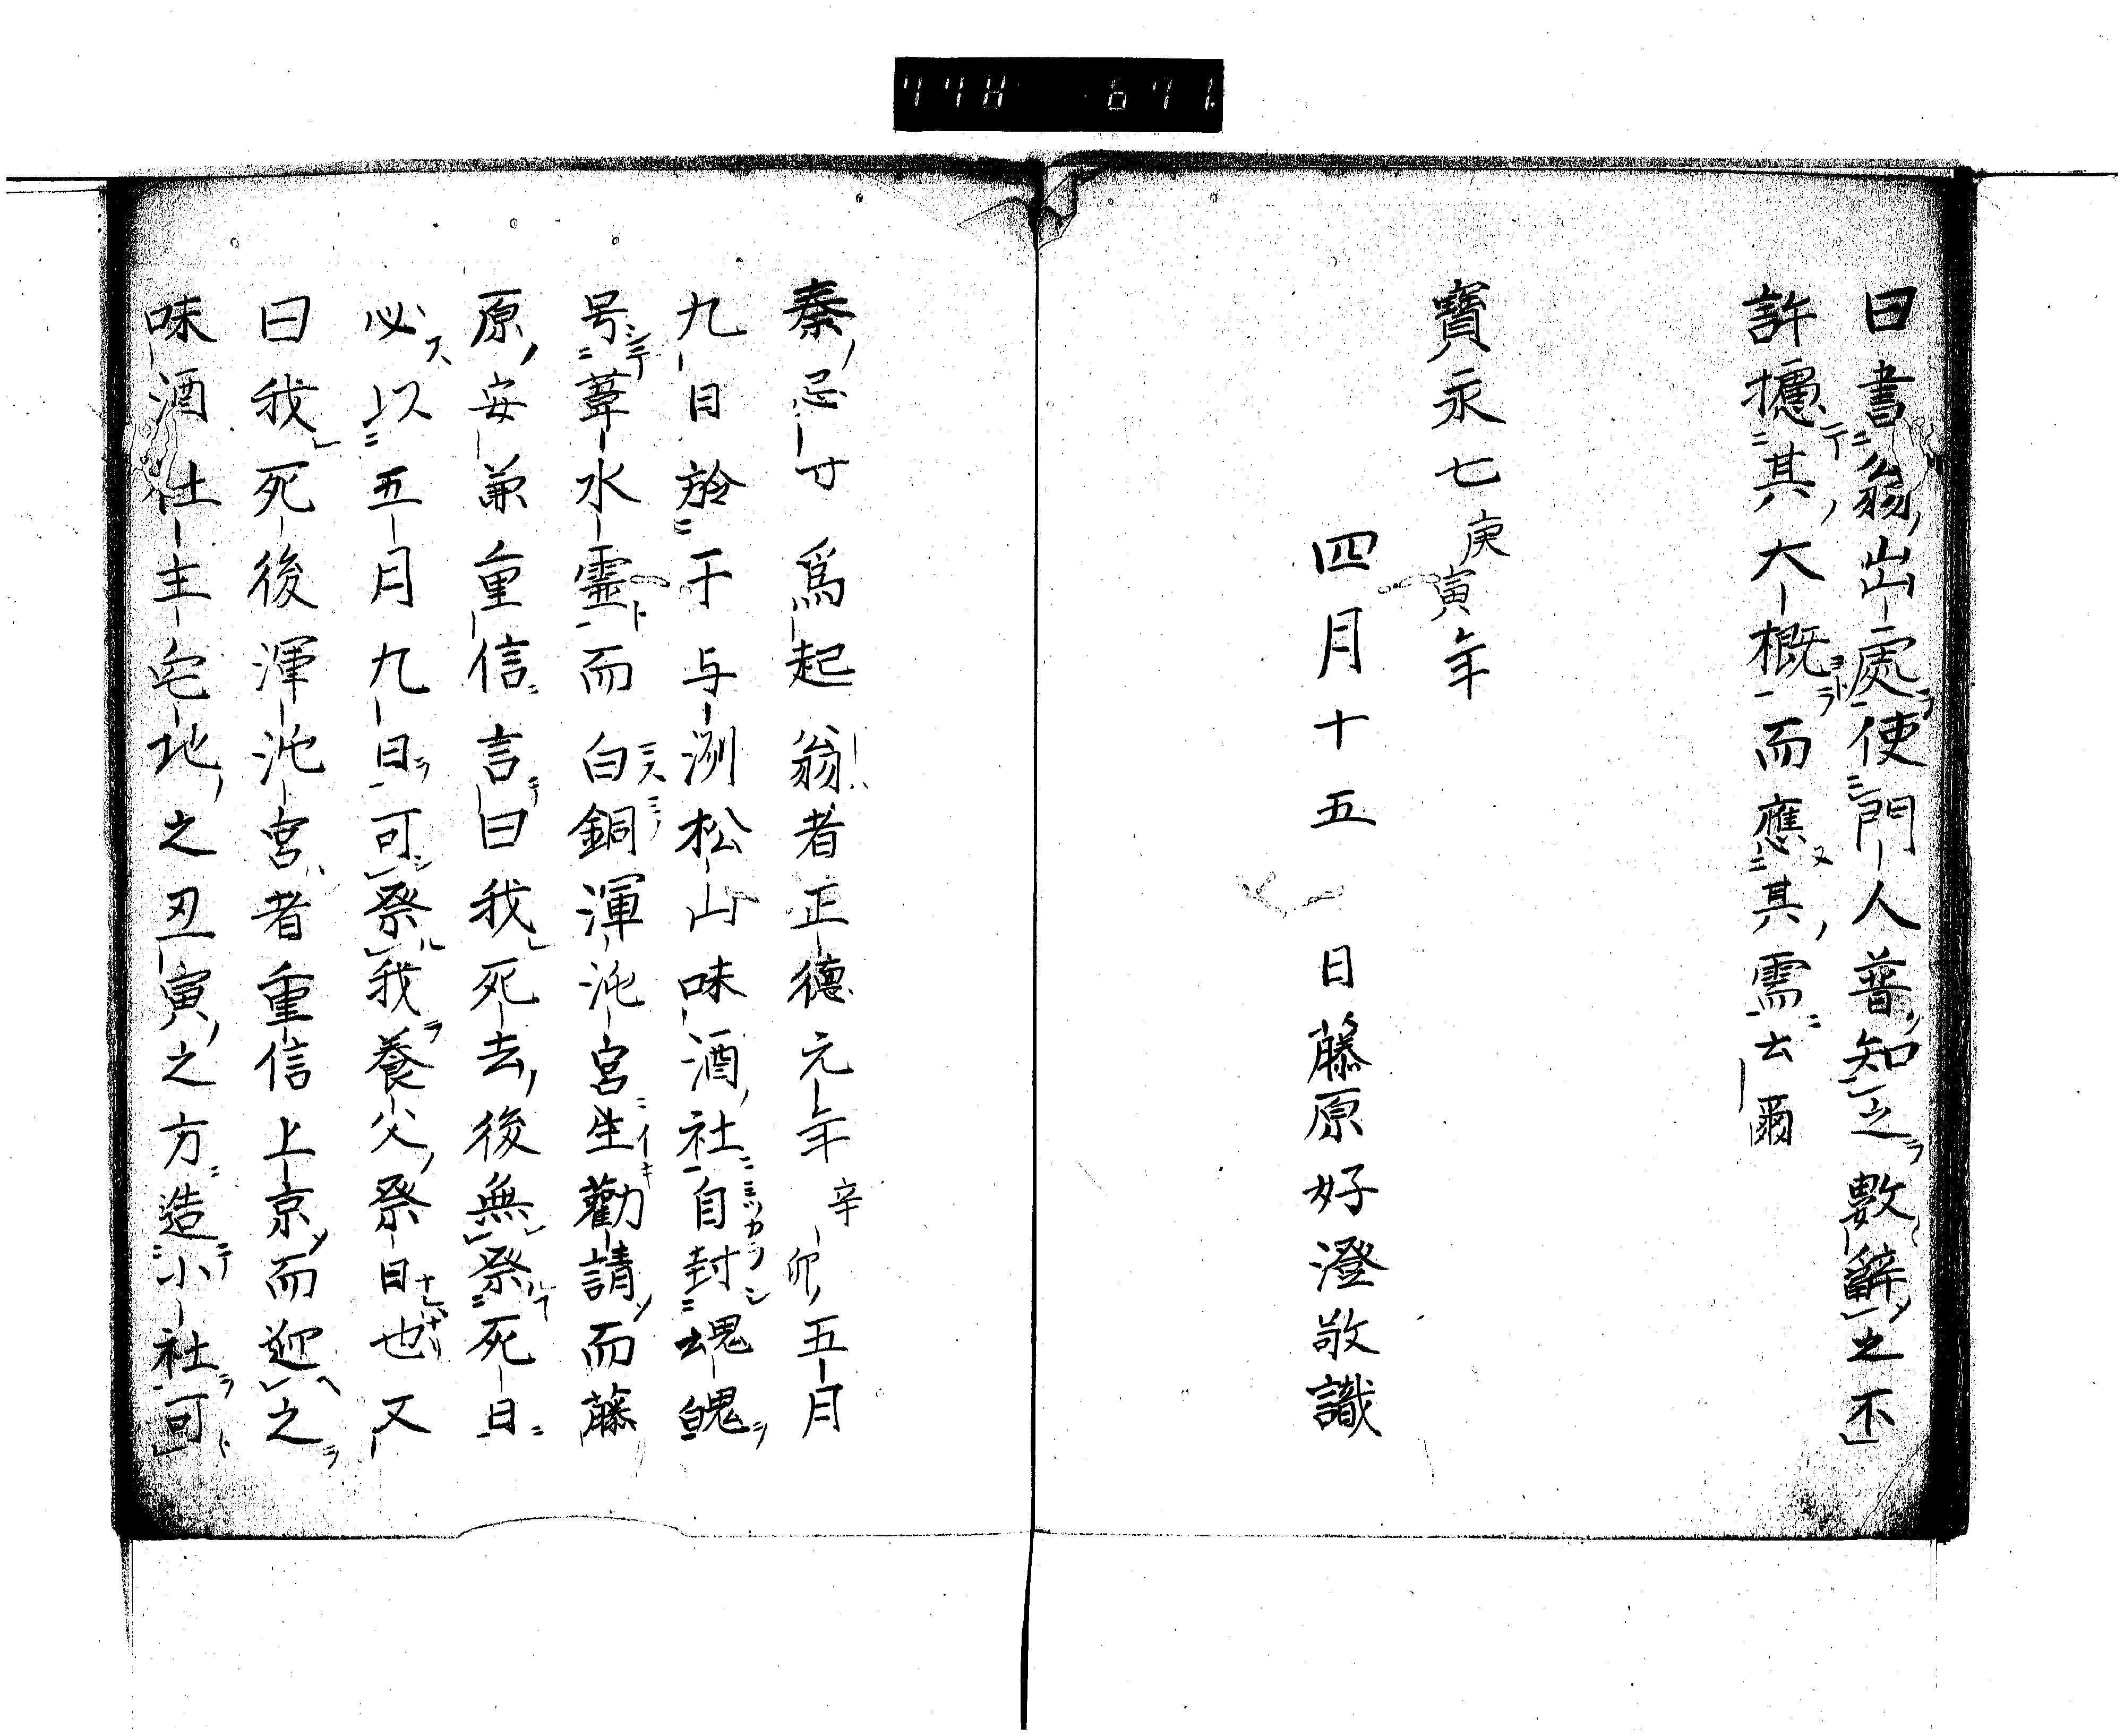 曰書翁出處使門人普知之數辭之不
許攄其大概而應其需云爾
寶永七庚寅年
四月十五日藤原好澄敬識
秦忌寸為起翁者正徳元年辛卯五月
九日於于与洌松山味酒社自封魂魄
号葦水霊而白銅渾沌宮生勸請而藤
原安兼重信言曰我死去後無祭死日
必以五月九日可祭我養父祭日也又
曰我死後渾沌宮者重信上京而迎之
味酒社主宅地之丑寅之方造小社可